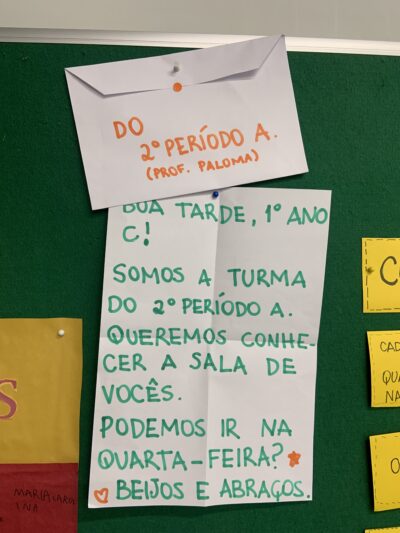 DO
2º PERÍODO A.
(PROF. PALOMA)
BOA TARDE, 1º ANO
C!
SOMOS A TURMA
DO 2º PERÍODO A.
QUEREMOS CONHE-
CER A SALA DE
VOCÊS.
PODEMOS IR NA
QUARTA-FEIRA?
BEIJOS E ABRAÇOS.
S
C
CAD
QUA
NA
O